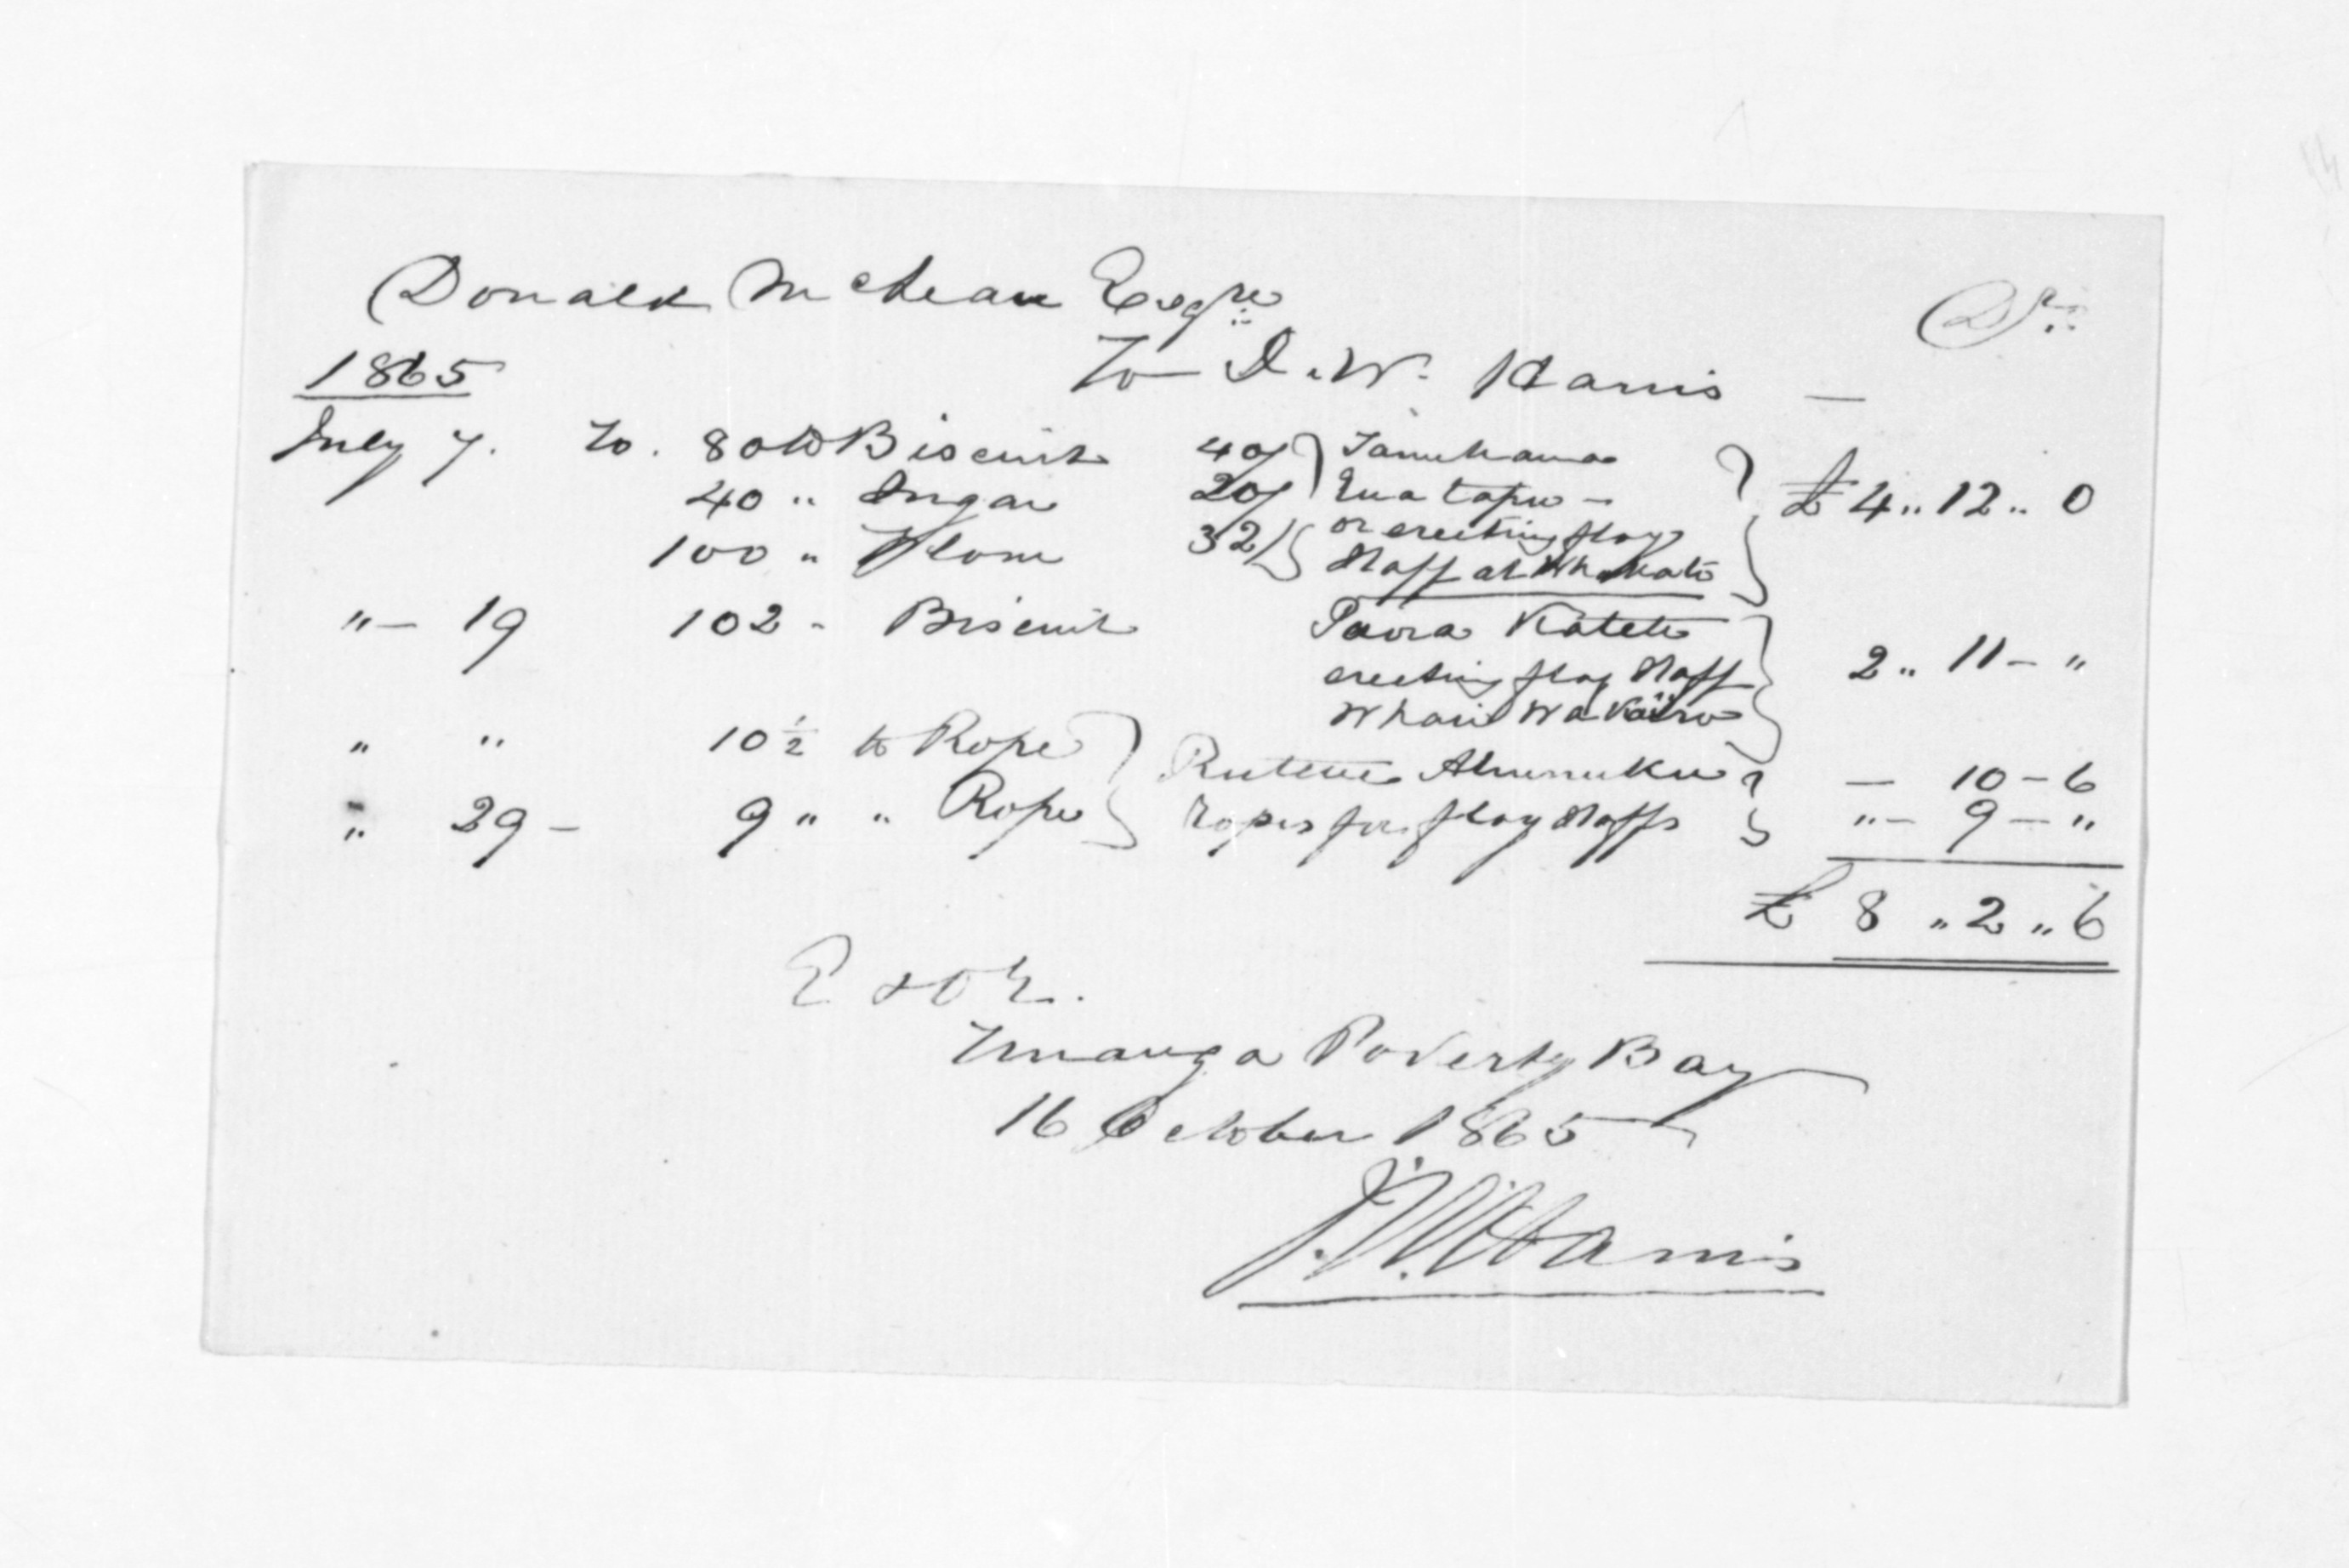 Donald McLean Esqre Dr
1865 To J. W. Harris —
July 7. To. 80 lb Biscuit 40/ Tamihana
40 " Sugar 20/ Ruatapu —
100 " Flour 32/ on erecting flag
Staff at Whakato £ 4 " 12 " 0
" — 19 102 " Biscuit Paora Katete
erecting flag Staff 2 " 11 — "
Whari Wakairo
" " 10 ½ lb Rope Rutene Ahunuku — 10 — 6
" 29 — 9 " " Rope ropes for flag Staffs " — 9 — "
£ 8 " 2 " 6
E & O E.
Turanga Poverty Bay
16 October 1865
J. W. Harris